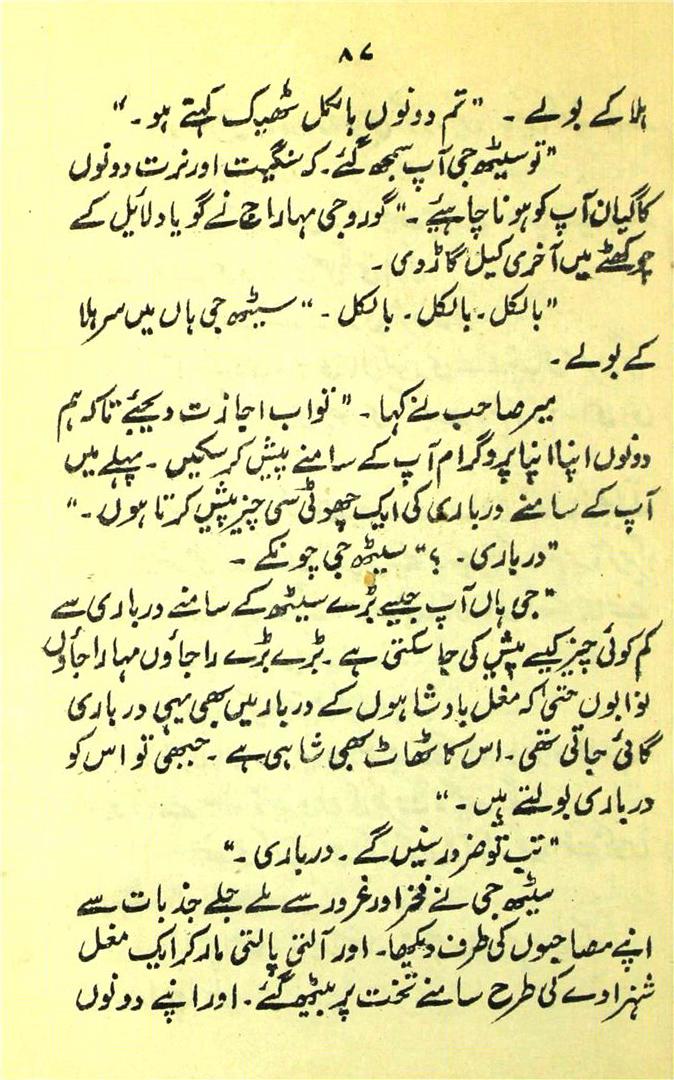 ۸۷
ہلا کے بولے ۔ "تم دونوں بالکل ٹھیک کہتے ہو۔"
"تو سیٹھ جی آپ سمجھ گئے۔ کہ سنگیت اور نرت دونوں
کا گیان آپ کو ہونا چاہیئے ۔" گورو جی مہاراج نے گویا دلائیل کے
چوکھٹے میں آخری کیل گاڑ دی ۔
"بالکل ۔ بالکل ۔ بالکل ۔" سیٹھ جی ہاں میں سر ہلا
کے بولے ۔
میر صاحب نے کہا ۔ "تو اب اجازت دیجئے تاکہ ہم
دونوں اپنا اپنا پروگرام آپ کے سامنے پیش کر سکیں ۔ پہلے میں
آپ کے سامنے درباری کی ایک چھوٹی سی چیز پیش کرتا ہوں۔"
"درباری ۔ ؟" سیٹھ جی چونکے ۔
"جی ہاں آپ جیسے بڑے سیٹھ کے سامنے درباری سے
کم کوئی چیز کیسے پیش کی جا سکتی ہے ۔ بڑے بڑے راجاؤں مہاراجاؤں
نوابوں حتیٰ کہ مغل بادشاہوں کے دربار میں بھی یہی درباری
گائی جاتی تھی ۔ اس کا ٹھاٹ بھی شاہی ہے ۔ جبھی تو اس کو
درباری بولتے ہیں ۔"
"تب تو ضرور سنیں گے ۔ درباری ۔"
سیٹھ جی نے فخر اور غرور سے ملے جلے جذبات سے
اپنے مصاحبوں کی طرف دیکھا۔ اور آلتی پالتی مار کر ایک مغل
شہزادے کی طرح سامنے تخت پر بیٹھ گئے ۔ اور اپنے دونوں